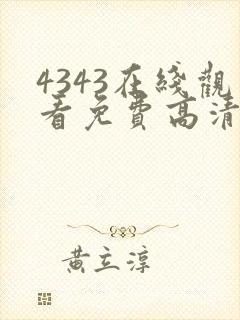 4343在綫觀
看免費高清
黃立淳